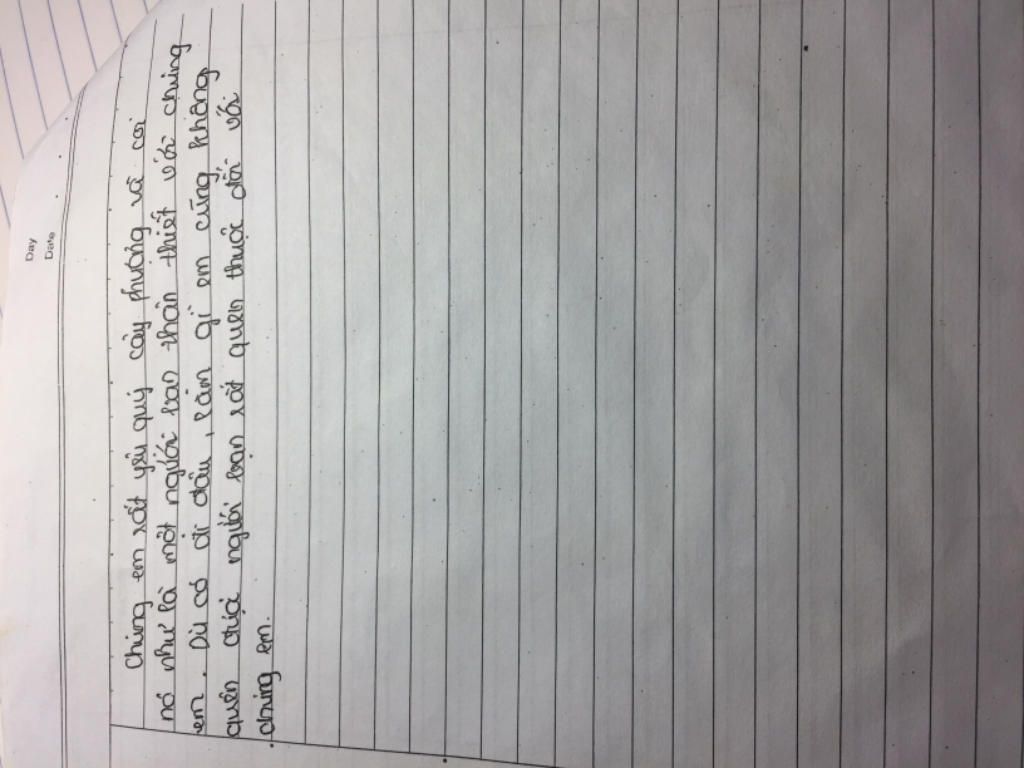 Day
Date
Chúng em rất yêu quý cây phượng và coi
nó như là một người bạn thân thiết với chúng
em. Dù có đi đâu, làm gì em cũng không
quên được người bạn rất quen thuộc đối với
chúng em.